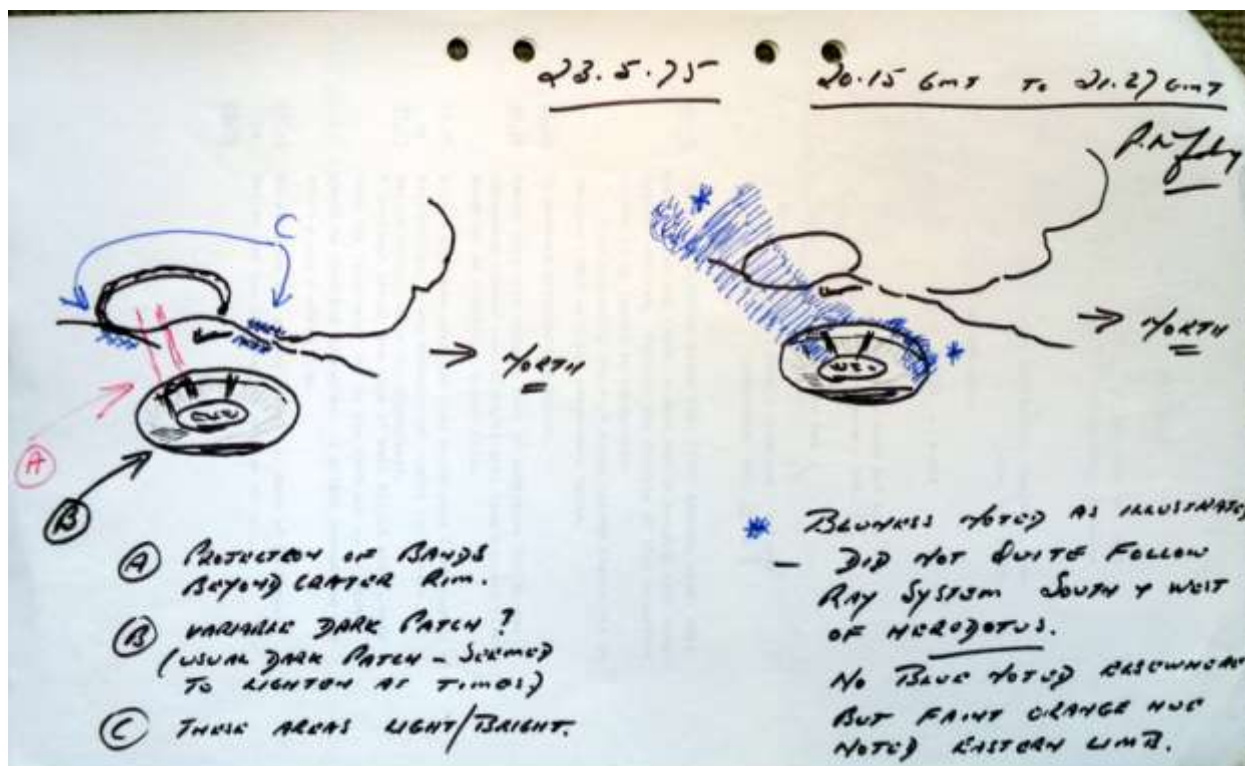 23.5.75
20.15 GMT TO 21.27 GMT
P.W. Foley
C
NORTH
A
B
* NORTH
*
A PROJECTION OF BANDS
BEYOND CRATER RIM.
B VARIABLE DARK PATCH?
(USUAL DARK PATCH - SEEMED
TO LIGHTEN AT TIMES)
C THESE AREAS LIGHT/BRIGHT.
* BLUNESS NOTED AS ILLUSTRATED
- DID NOT QUITE FOLLOW
RAY SYSTEM SOUTH + WEST
OF HERODOTUS.
NO BLUE NOTED ELSEWHERE
BUT FAINT ORANGE HUE
NOTED EASTERN LIMB.